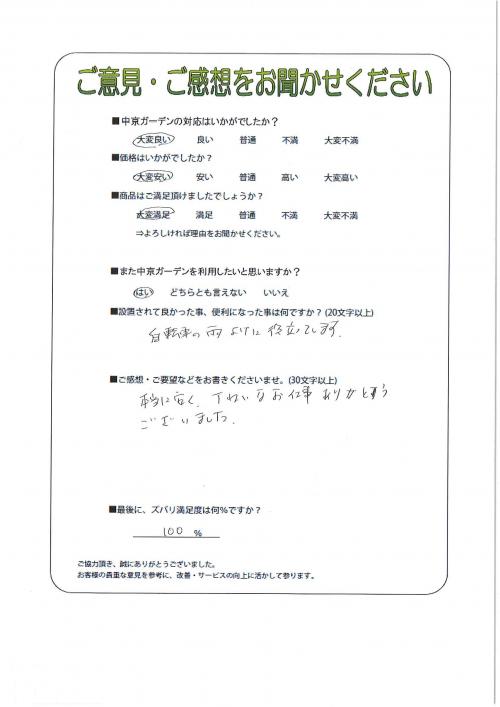 ご意見・ご感想をお聞かせください
■中京ガーデンの対応はいかがでしたか？
大変良い 良い 普通 不満 大変不満
■価格はいかがでしたか？
大変安い 安い 普通 高い 大変高い
■商品はご満足頂けましたでしょうか？
大変満足 満足 普通 不満 大変不満
⇒よろしければ理由をお聞かせください。
■また中京ガーデンを利用したいと思いますか？
はい どちらとも言えない いいえ
■設置されて良かった事、便利になった事は何ですか？(20文字以上)
自転車の雨よけに役立ってます.
■ご感想・ご要望などをお書きくださいませ。(30文字以上)
本当に安く、丁ねいなお仕事ありがとう
ございました.
■最後に、ズバリ満足度は何％ですか？
100 %
ご協力頂き、誠にありがとうございました。
お客様の貴重な意見を参考に、改善・サービスの向上に活かして参ります。